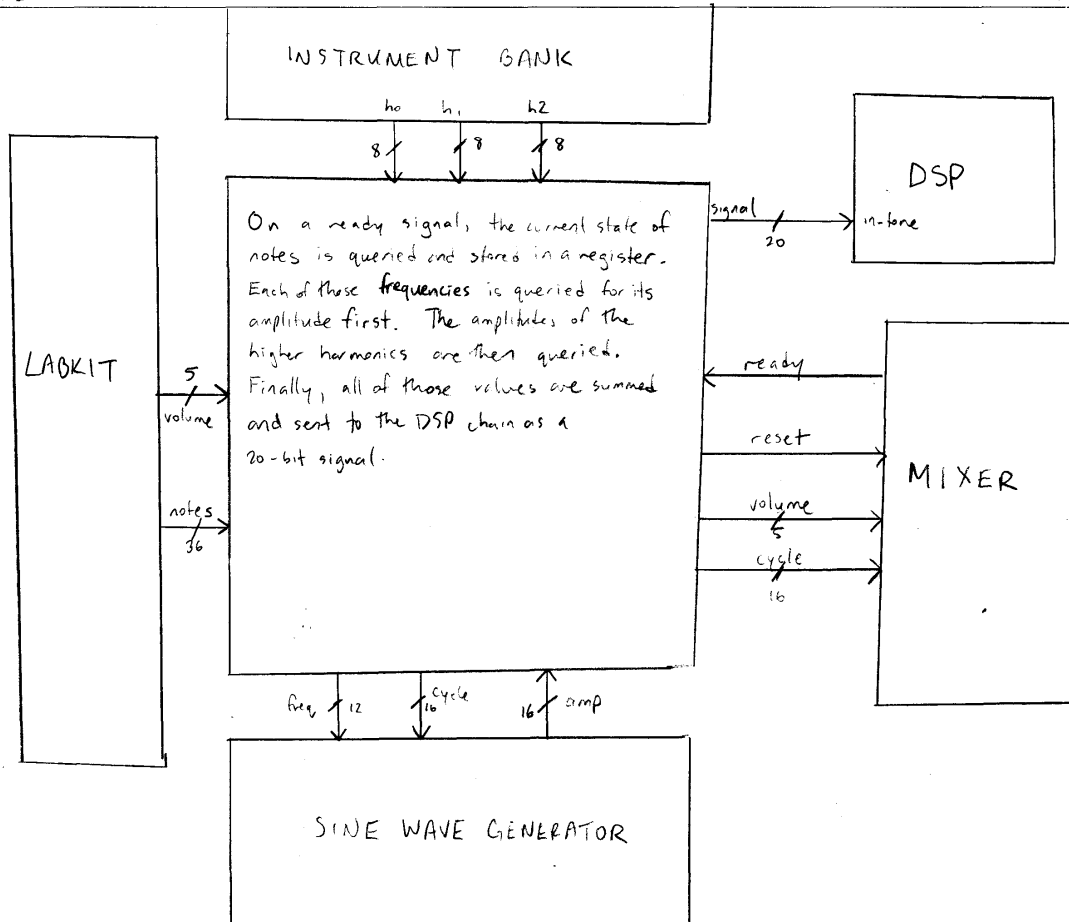 INSTRUMENT BANK
h0 h1 h2
8 8 8
DSP
signal
20
in-tone
On a ready signal, the current state of
notes is queried and stored in a register.
Each of those frequencies is queried for its
amplitude first. The amplitudes of the
higher harmonics are then queried.
Finally, all of those values are summed
and sent to the DSP chain as a
20-bit signal.
LABKIT
5
volume
notes
36
ready
reset
volume
5
cycle
16
MIXER
freq 12 cycle 16 16 amp
SINE WAVE GENERATOR